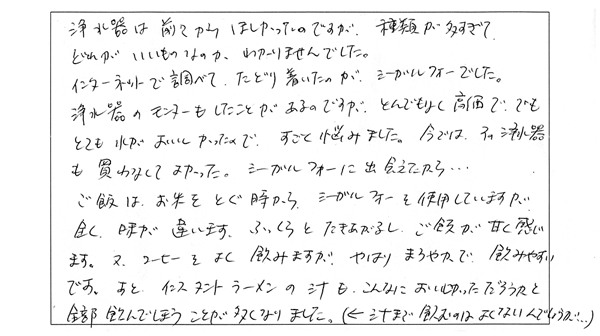 浄水器は前からほしかったのですが、種類が多すぎて、
どれがいいものなのか、わかりませんでした。
インターネットで調べて、たどり着いたのが、シーガルフォーでした。
浄水器のモニターもしたことがあるのですが、とんでもなく高価で、でも
とても水がおいしかったので、すごく悩みました。今では、その浄水器
も買わなくてよかった。シーガルフォーに出会えたから…
ご飯は、お米をとぐ時から、シーガルフォーを使用していますが、
全く、味が違います。ふっくらとたきあがるし、ご飯が甘く感じ
ます。又、コーヒーをよく飲みますが、やはりまろやかで、飲みやすい
です。あと、インスタントラーメンの汁も、こんなにおいしかっただろうかと
全部飲んでしまうことが多くなりました。(←汁まで飲むのはよくないんでしょうが…)